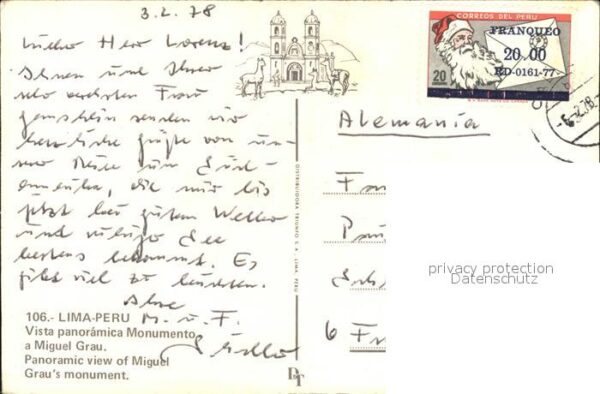 3.2.78
Lieber Herr Lorenz!
Ihnen und Ihrer
verehrten Frau
Gemahlin senden wir
herzliche Grüße von un-
Reise um Süd-
amerika, die mir bis
jetzt bei gutem Wetter
und ruhiger See
bestens bekommt. Es
gibt viel zu
Ihre
M. u. F.
106.- LIMA-PERU
Vista panorámica Monumento
a Miguel Grau.
Panoramic view of Miguel
Grau's monument.
DISTRIBUIDORA TRIUNFO S.A. LIMA, PERU
DT
CORREOS DEL PERU
FRANQUEO
20.00
RD-0161-77
20
-6.2.78
Alemania
6 
privacy protection
Datenschutz